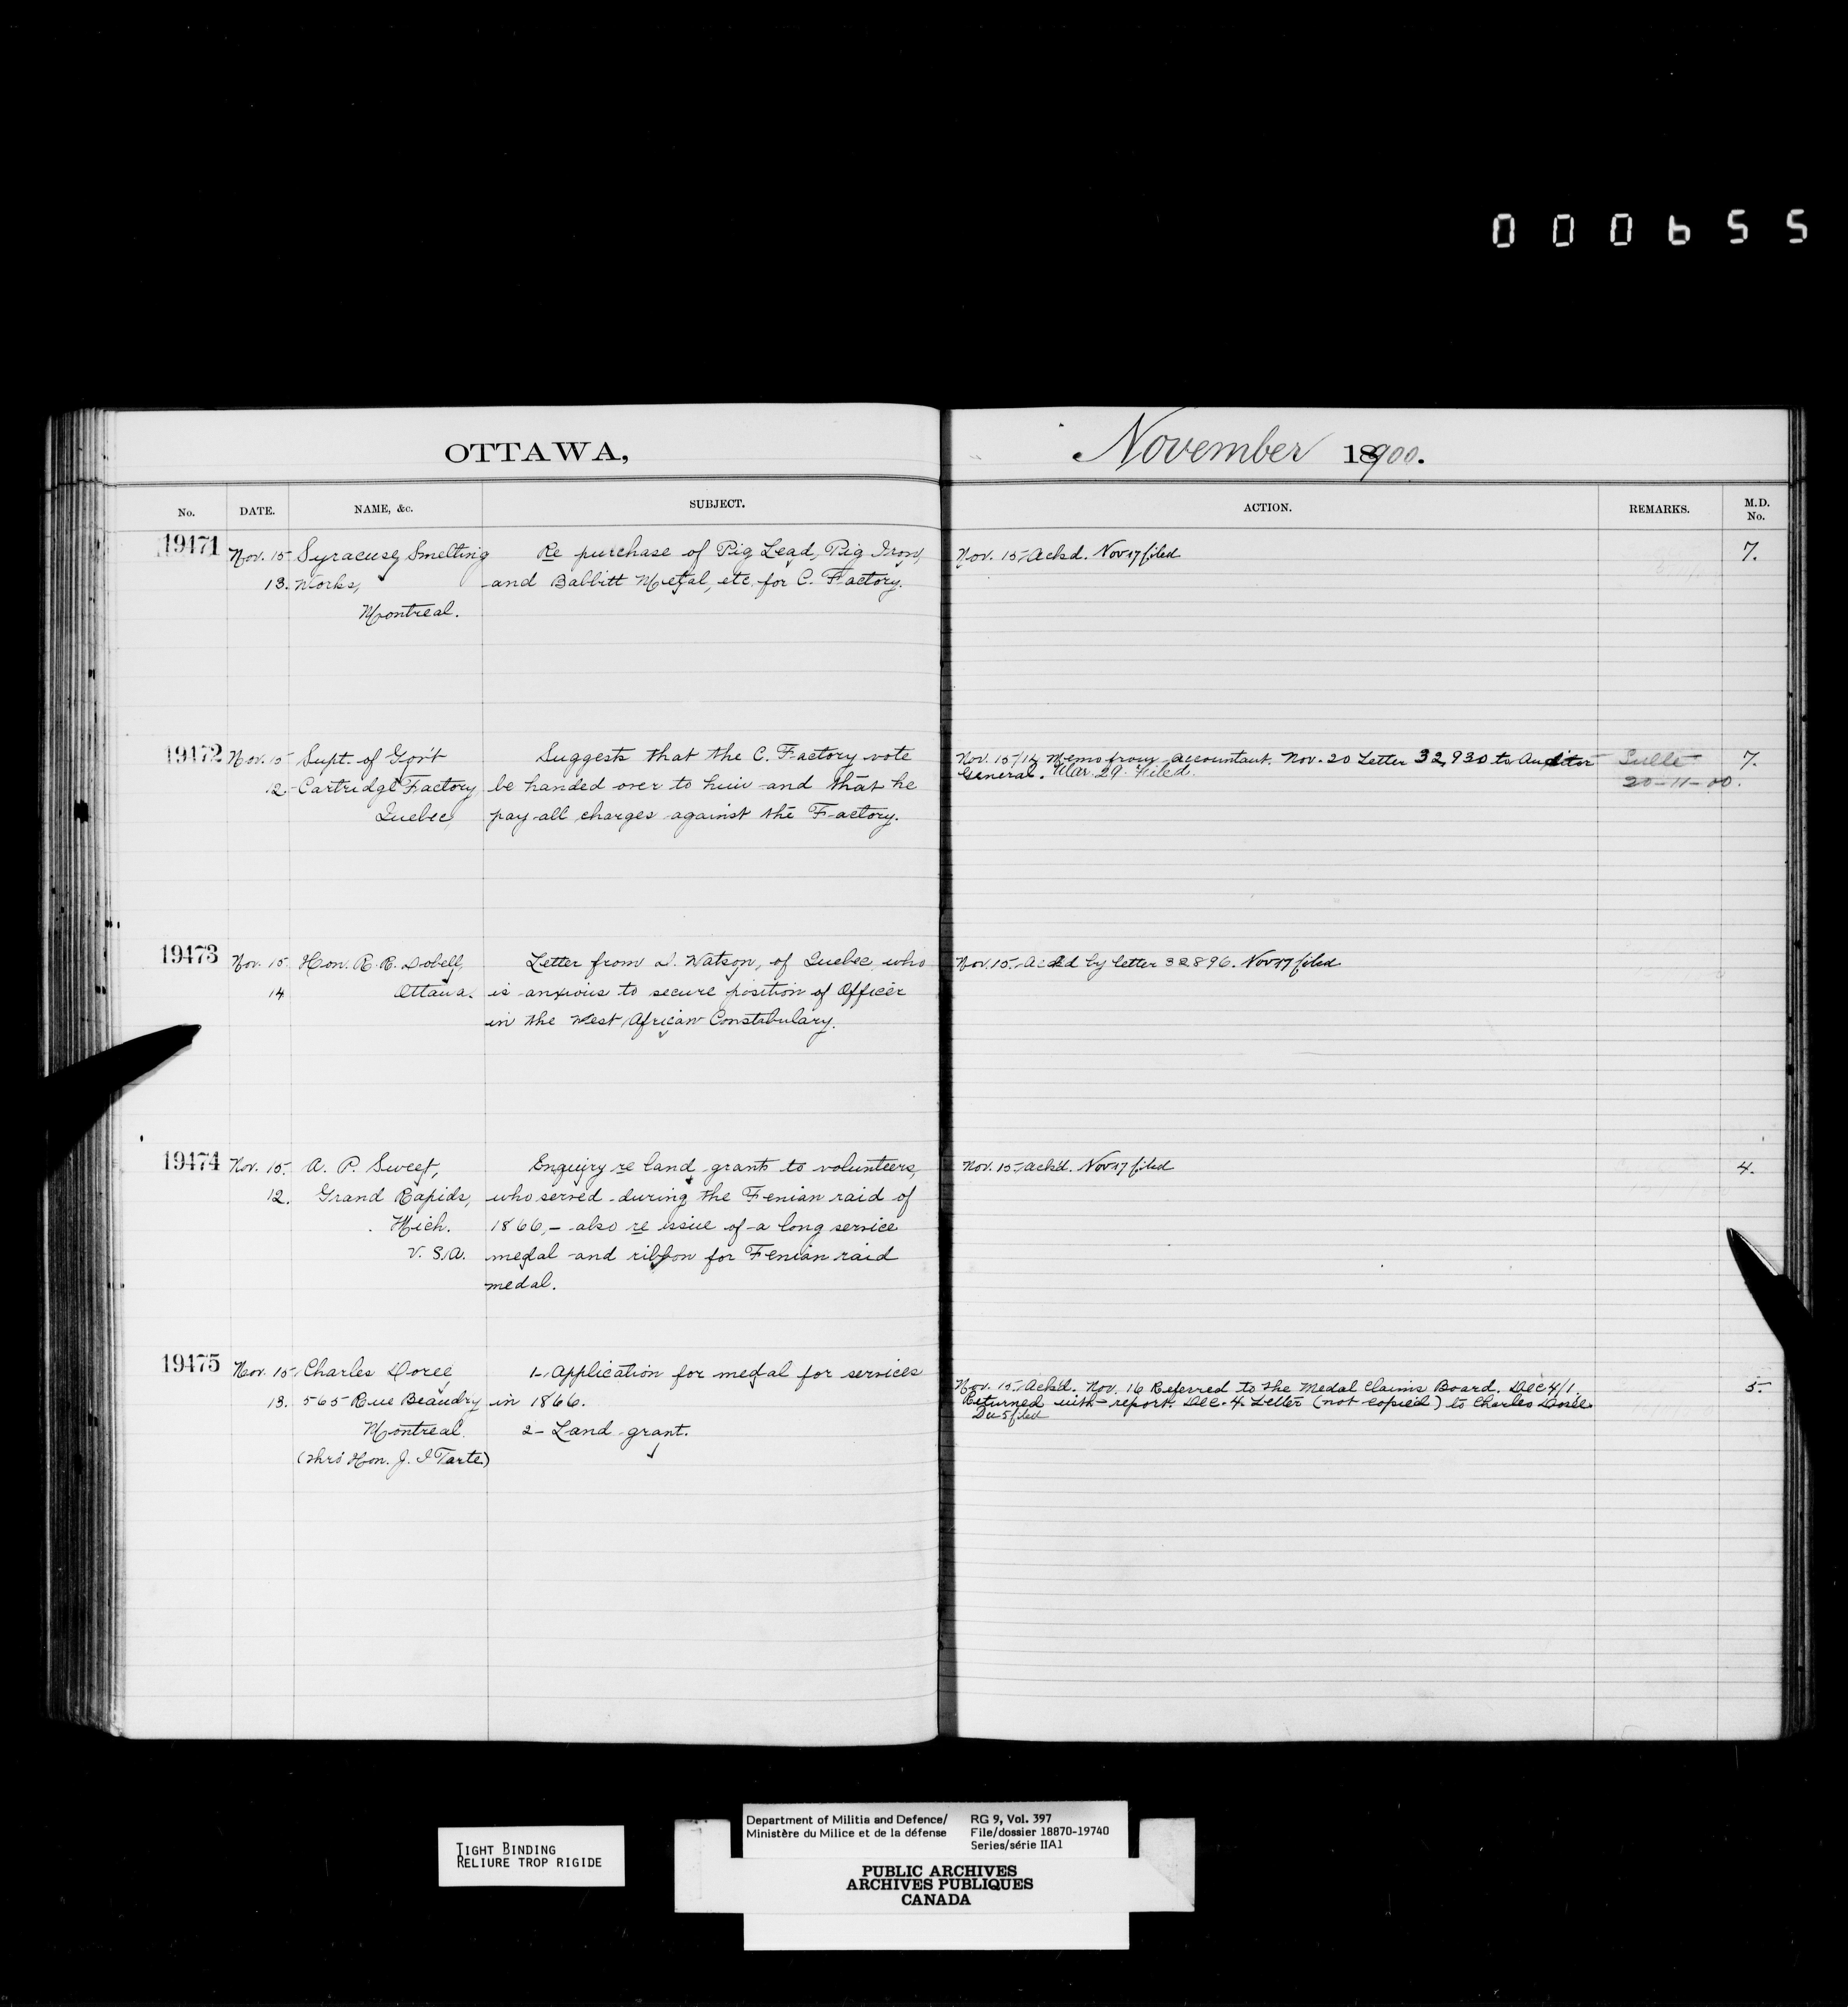 000655
OTTAWA,
November 1900.
No. DATE. NAME, &c. SUBJECT. ACTION. REMARKS. M.D. No.
19471 Nov. 15 Syracuse Smelting Re purchase of Pig Lead, Pig Iron, Nov. 15, Ackd. Nov 17 filed 7.
13. Works, and Babbitt Metal, etc. for C. Factory.
Montreal.
19472 Nov. 15 Supt. of Gov't Suggests that the C. Factory vote Nov. 15/14 Memo from Accountant. Nov. 20 Letter 32,930 to Auditor 7.
12. Cartridge Factory be handed over to him and that he General. Mar. 29. Filed. 20-11-00.
Quebec, pay all charges against the Factory.
19473 Nov. 15 Hon. R. R. Dobell, Letter from D. Watson, of Quebec, who Nov. 15, Ackd by letter 32896. Nov 17 filed
14 Ottawa. is anxious to secure position of Officer
in the West African Constabulary.
19474 Nov. 15. A. P. Sweet, Enquiry re land grants to volunteers, Nov. 15, Ackd. Nov 17 filed 4.
12. Grand Rapids, who served during the Fenian raid of
Mich. 1866, - also re issue of a long service
U. S. A. medal and ribbon for Fenian raid
medal.
19475 Nov. 15, Charles Doree, 1- Application for medal for services Nov. 15, Ackd. Nov. 16 Referred to the Medal Claims Board. Dec 4/1. 5.
13. 565 Rue Beaudry in 1866. Returned with report. Dec. 4. Letter (not copied) to Charles Doree.
Montreal. 2- Land grant. Dec 5 filed
(Thro' Hon. J. I Tarte)
TIGHT BINDING
RELIURE TROP RIGIDE
Department of Militia and Defence/ RG 9, Vol. 397
Ministère du Milice et de la défense File/dossier 18870-19740
Series/série IIA1
PUBLIC ARCHIVES
ARCHIVES PUBLIQUES
CANADA